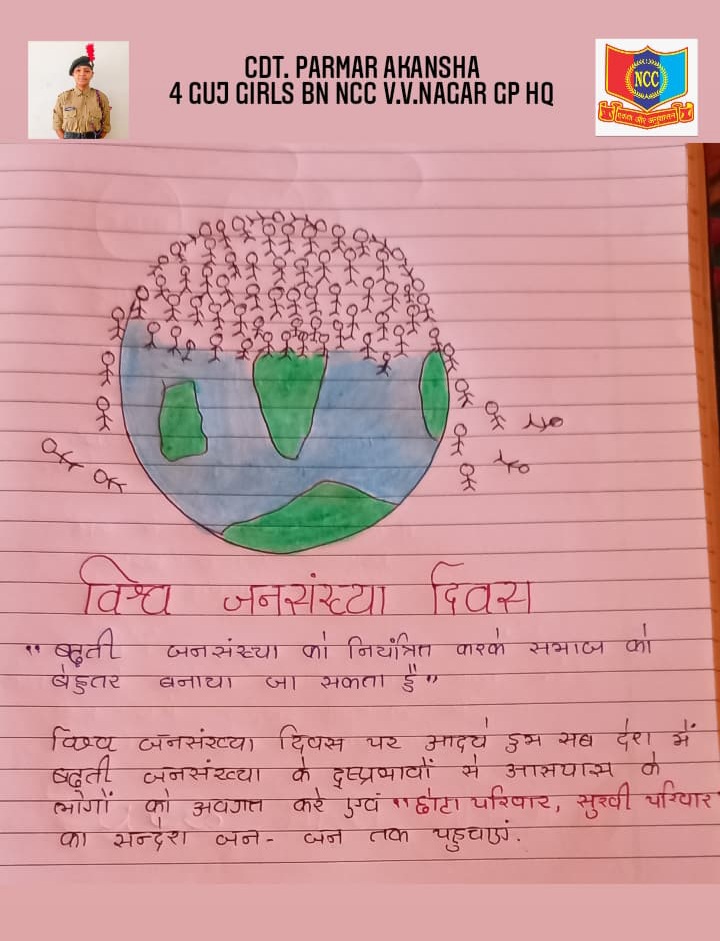 CDT. PARMAR AKANSHA
4 GUJ GIRLS BN NCC V.V.NAGAR GP HQ
NCC
एकता और अनुशासन
विश्व जनसंख्या दिवस
"बढ़ती जनसंख्या को नियंत्रित करके समाज को
बेहतर बनाया जा सकता है"
विश्व जनसंख्या दिवस पर आइये हम सब देश में
बढ़ती जनसंख्या के दुष्प्रभावों से आसपास के
लोगों को अवगत करे एवं "छोटा परिवार, सुखी परिवार
का सन्देश जन-जन तक पहुचाएं.